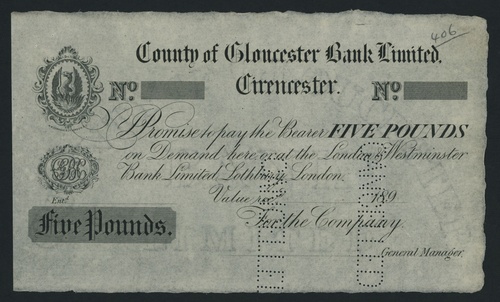 406
County of Gloucester Bank Limited.
Cirencester.
No. No.
I Promise to pay the Bearer FIVE POUNDS
on Demand here or at the London & Westminster
Bank Limited, Lothbury, London.
Value recd. 189
Entd.
For the Company.
Five Pounds.
General Manager.